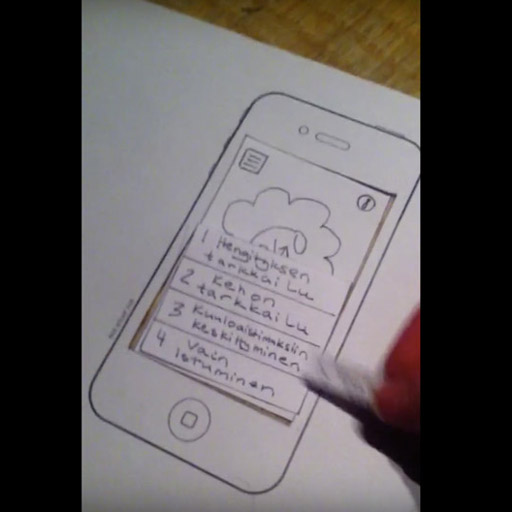 1 Hengityksen
tarkkailu
2 Kehon
tarkkailu
3 Kuuloaistimuksiin
keskittyminen
4 Vain
istuminen